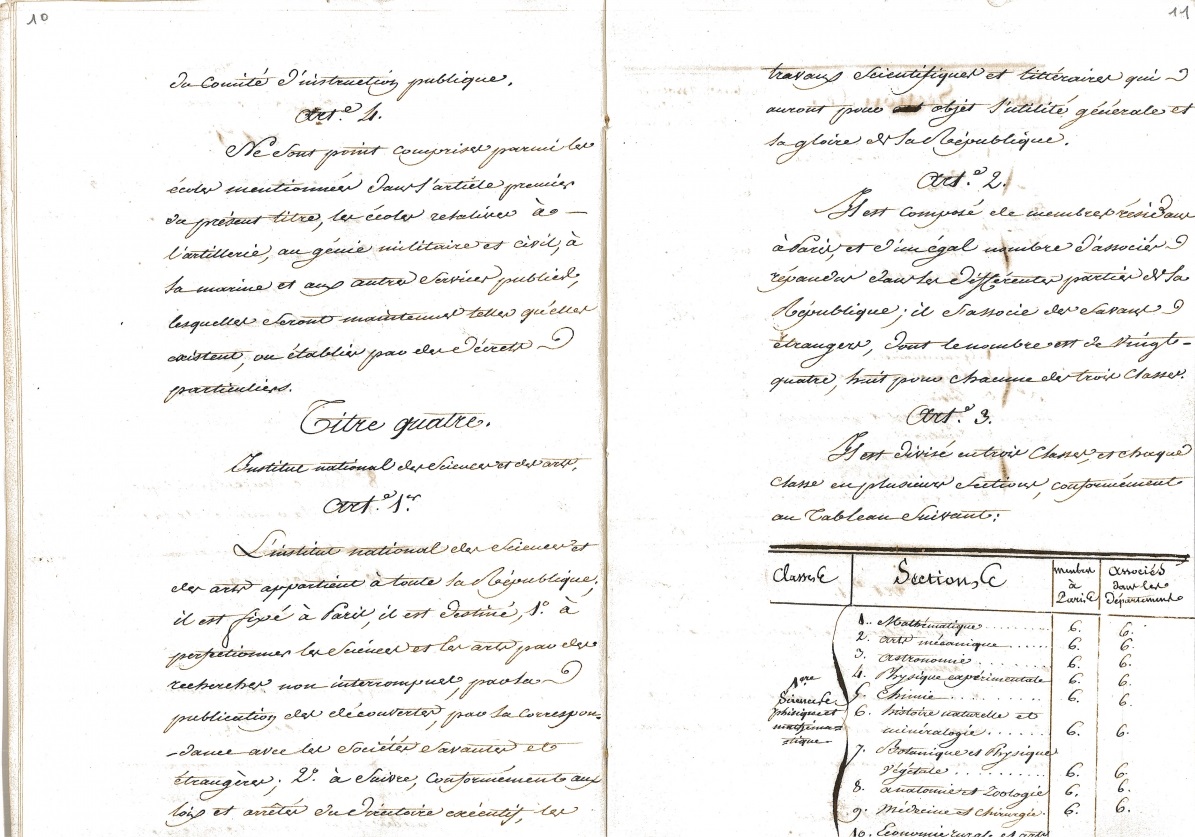 10
du Comité d'instruction publique.
Art.e 4.
Ne sont point comprises parmi les
écoles mentionnées dans l'article premier
du présent titre, les écoles relatives à
l'artillerie, au génie militaire et civil, à
la marine et aux autres services publics,
lesquelles seront maintenues telles qu'elles
existent, ou établies par des décrets
particuliers.
Titre quatre.
Institut national des Sciences et des arts.
Art.e 1.er
L'institut national des Sciences et
des arts appartient à toute la République,
il est fixé à Paris, il est destiné, 1.o à
perfectionner les Sciences et les arts par des
recherches non interrompues, par la
publication des découvertes, par la correspon-
-dance avec les Sociétés Savantes et
étrangères; 2.o à Suivre, conformément aux
lois et arrêtés du directoire exécutif, les
11
travaux Scientifiques et littéraires qui
auront pour objet l'utilité générale et
la gloire de la République.
Art.e 2.
Il est composé de membres résidans
à Paris, et d'un égal nombre d'associés
répandus dans les différentes parties de la
République; il s'associe des Savans
étrangers, dont le nombre est de vingt-
quatre, huit pour chacune des trois Classes.
Art.e 3.
Il est divisé en trois Classes, et chaque
Classe en plusieurs Sections, conformément
au Tableau Suivant:
Classes Sections membres à Paris associés dans les départements
1.. Mathématique........ 6. 6.
2. arts mécanique...... 6. 6.
3. astronomie........ 6. 6.
4. Physique expérimentale 6. 6.
5. Chimie.......... 6. 6.
1ere Sciences phisiques et mathéma-tiques
6. histoire naturelle et
minéralogie....... 6. 6.
7. Botanique et Physique
végétale......... 6. 6.
8. anatomie et Zoologie 6. 6.
9. Médecine et Chirurgie 6. 6.
10. Economie rurale et arts